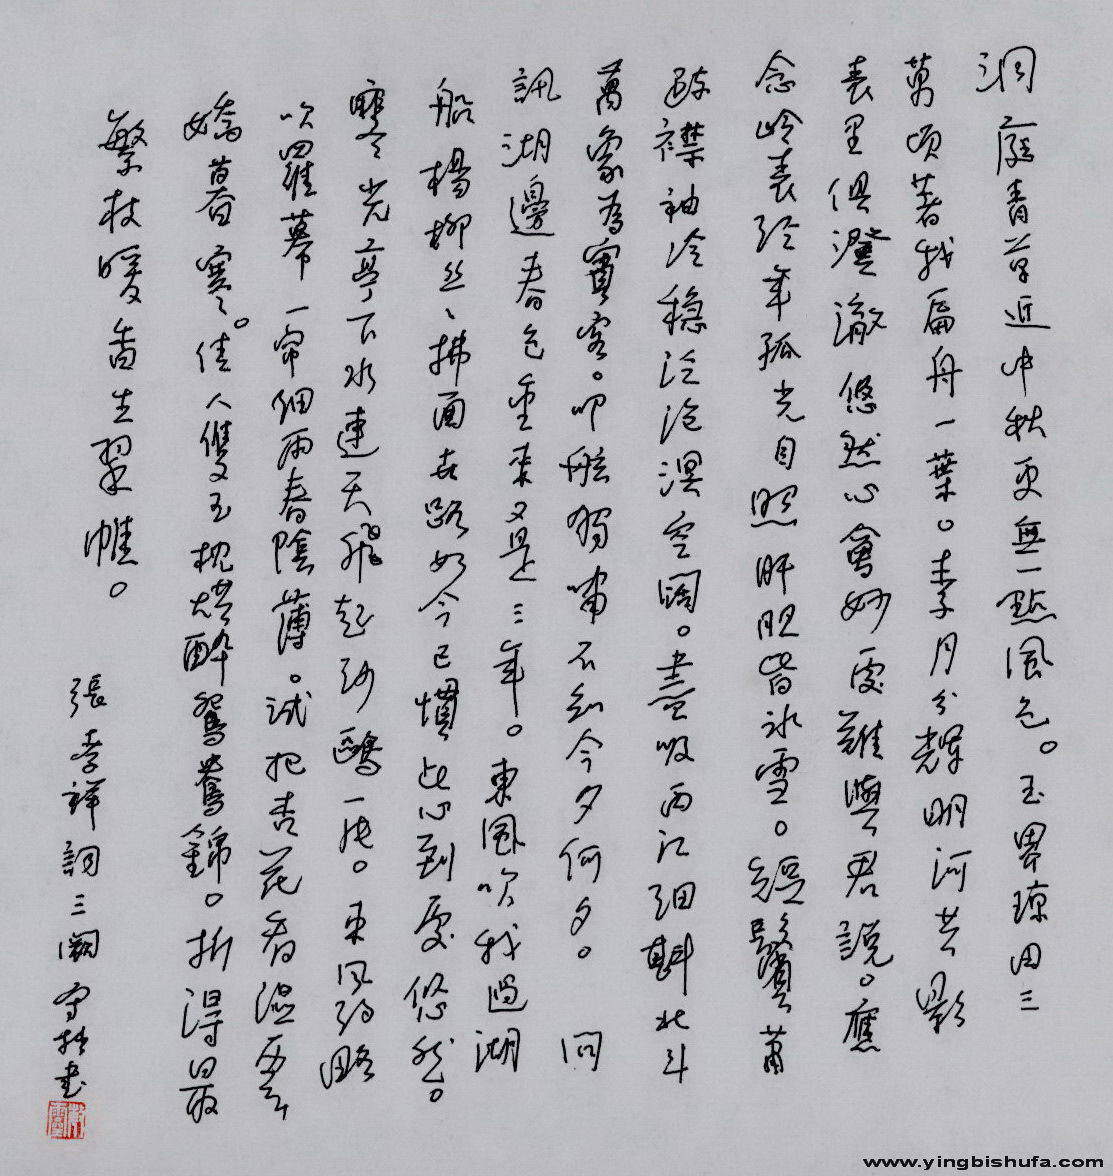 洞庭青草近中秋更無一點風色。玉界琼田三
萬頃著我扁舟一葉。素月分輝明河共影
表里俱澄澈悠然心會妙處難與君說。應
念岭表經年孤光自照肝胆皆冰雪。短鬢蕭
疏襟袖冷稳泛滄溟空闊。盡吸西江細斟北斗
萬象為賓客。叩舷獨嘯不知今夕何夕。 問
訊湖邊春色重來又是三年。東風吹我過湖
船楊柳丝丶拂面世路如今已慣此心到處悠然。
寒光亭下水連天飛起沙鷗一片。東风約略
吹羅幕一帘細雨春陰薄。試把杏花看湿雲
嬌暮寒。佳人雙玉枕烘醉鴛鴦錦。折得最
繁枝暖香生翠帷。
張孝祥詞三闋 守拙書
www.yingbishufa.com